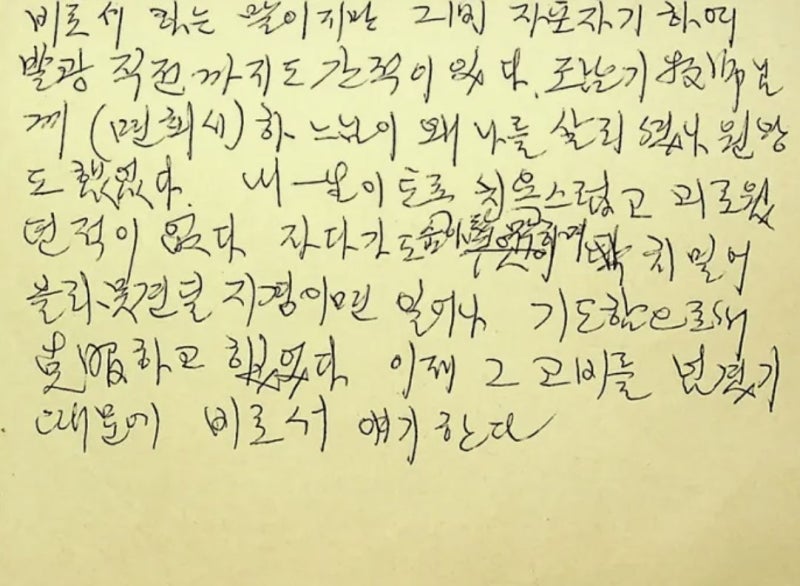 비로서 하는 말이지만 그만 자포자기 하여
발광 직전 까지도 간적이 있다.
께 (면회시) 하느님이 왜 나를 살리셨나 원망
도 했었다. 내 一生이 토록 치욕스럽고 괴로웠
던 적이 없다 자다가도 숨이 치밀어
못견딜 지경이면 일어나 기도함으로써
克服하고 했었다. 이제 그 고비를 넘겼기
때문에 비로서 얘기한다